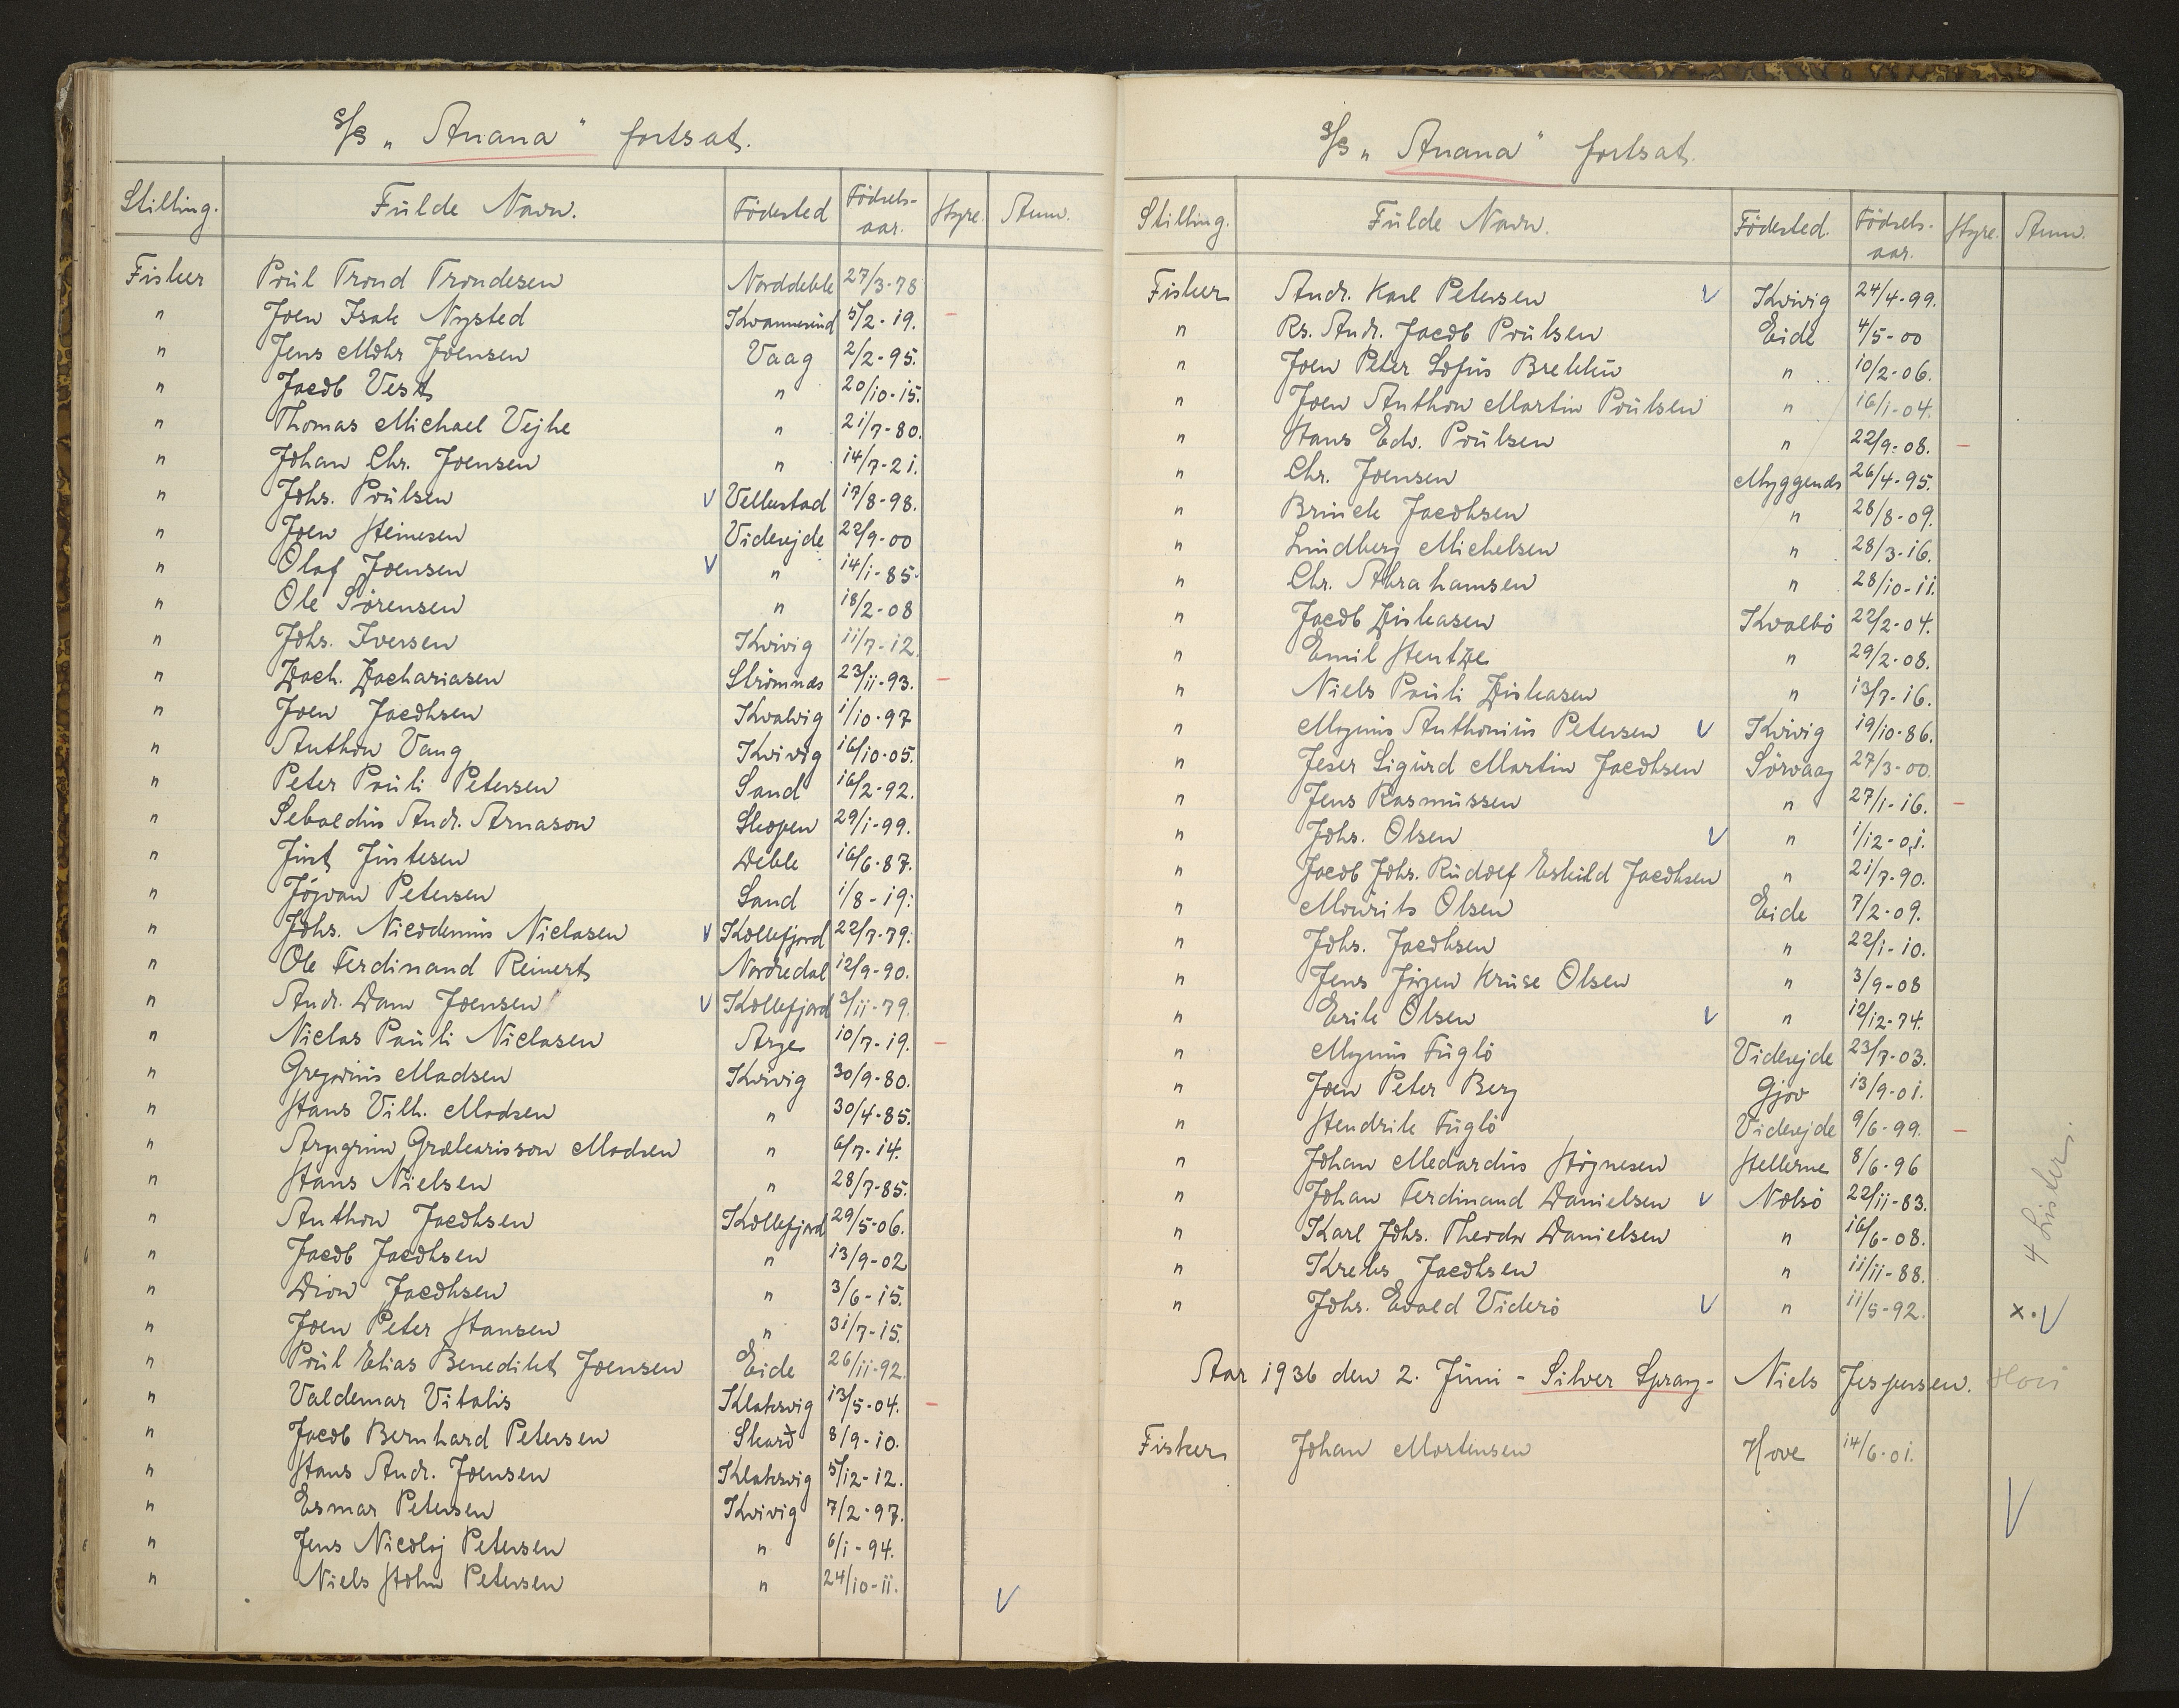 S/S „ Anana " fortsat.
Stilling. Fülde Navn. Födested Födsels-aar. Hyre. Anm.
Fisker Poül Trond Trondesen Norddeble 27/3-78
" Joen Isak Nysted Kvannesünd 5/2-19. -
" Jens Mohr Joensen Vaag 2/2-95.
" Jacob Vest " 20/10-15.
" Thomas Michael Vejhe " 21/7-80.
" Johan Chr. Joensen " 14/7-21.
" Johs. Poülsen V Vellestad 17/8-98.
" Joen Heinesen Viderejde 22/9-00
" Olaf Joensen V " 14/1-85.
" Ole Sörensen " 18/2-08
" Johs. Iversen Kvivig 11/7-12.
" Zach. Zachariasen Strömnæs 23/11-93. -
" Joen Jacobsen Kvalvig 1/10-97
" Anthon Vang Kvivig 16/10-05.
" Peter Paüli Petersen Sand 16/2-92.
" Sebaldüs Andr. Arnason Skopen 29/1-99.
" Jüst Jüstesen Deble 16/6-87.
" Jógvan Petersen Sand 1/8-19.
" Johs. Nicodemüs Niclasen V Kollefjord 22/7-79.
" Ole Ferdinand Reinert Nordredal 12/9-90.
" Andr. Dam Joensen V Kollefjord 3/11-79.
" Niclas Paüli Niclasen Arge 10/7-19. -
" Gregoriüs Madsen Kvivig 30/9-80.
" Hans Vilh. Madsen " 30/4-85.
" Arngrim Grækarisson Madsen " 6/7-14.
" Hans Nielsen " 28/7-85.
" Anthon Jacobsen Kollefjord 29/5-06.
" Jacob Jacobsen " 13/9-02
" Dion Jacobsen " 3/6-15.
" Joen Peter Hansen " 31/7-15.
" Poül Elias Benedikt Joensen Eide 26/11-92.
" Valdemar Vitalis Klaksvig 13/5-04. -
" Jacob Bernhard Petersen Skarð 8/9-10.
" Hans Andr. Joensen Klaksvig 5/12-12.
" Esmar Petersen Kvivig 7/2-97.
" Jens Nicolaj Petersen " 6/1-94.
" Niels Holm Petersen " 24/10-11.
V
S/S „ Anana " fortsat.
Stilling. Fülde Navn. Födested. Födsels-aar. Hyre. Anm.
Fisker Andr. Karl Petersen V Kvivig 24/4-99.
" Rs. Andr. Jacob Poülsen Eide 4/5-00
" Joen Peter Sofüs Brekkü " 10/2-06.
" Joen Anthon Martin Poülsen " 16/1-04.
" Hans Edv. Poülsen " 22/9-08. -
" Chr. Joensen Myggenæs 26/4-95.
" Brinck Jacobsen " 28/8-09.
" Lindberg Michelsen " 28/3-16.
" Chr. Abrahamsen " 28/10-11.
" Jacob Ziskasen Kvalbö 22/2-04.
" Emil Hentze " 29/2-08.
" Niels Paüli Ziskasen " 13/7-16.
" Magnüs Anthoniüs Petersen V Kvivig 19/10-86.
" Jeser Sigürd Martin Jacobsen Sörvaag 27/3-00.
" Jens Rasmüssen " 27/1-16. -
" Johs. Olsen V " 1/12-01.
" Jacob Johs. Rüdolf Eskild Jacobsen " 21/7-90.
" Moürits Olsen Eide 7/2-09.
" Johs. Jacobsen " 22/1-10.
" Jens Jörgen Krüse Olsen " 3/9-08
" Erik Olsen V " 12/12-74.
" Magnüs Füglö Viderejde 23/7-03.
" Joen Peter Berg Gjov 13/9-01.
" Hendrik Füglö Viderejde 9/6-99. -
" Johan Medardüs Högnesen Hellerne 8/6-96
" Johan Ferdinand Danielsen V Nolsö 22/11-83.
" Karl Johs. Theodor Danielsen " 16/6-08.
" Krebs Jacobsen " 11/11-88.
" Johs. Evald Viderö V " 11/5-92. x. V
4 Lister.
Aar 1936 den 2. Jüni - Silver Spray - Niels Jespersen. Hovi
Fisker Johan Mortensen Hove 14/6-01.
V